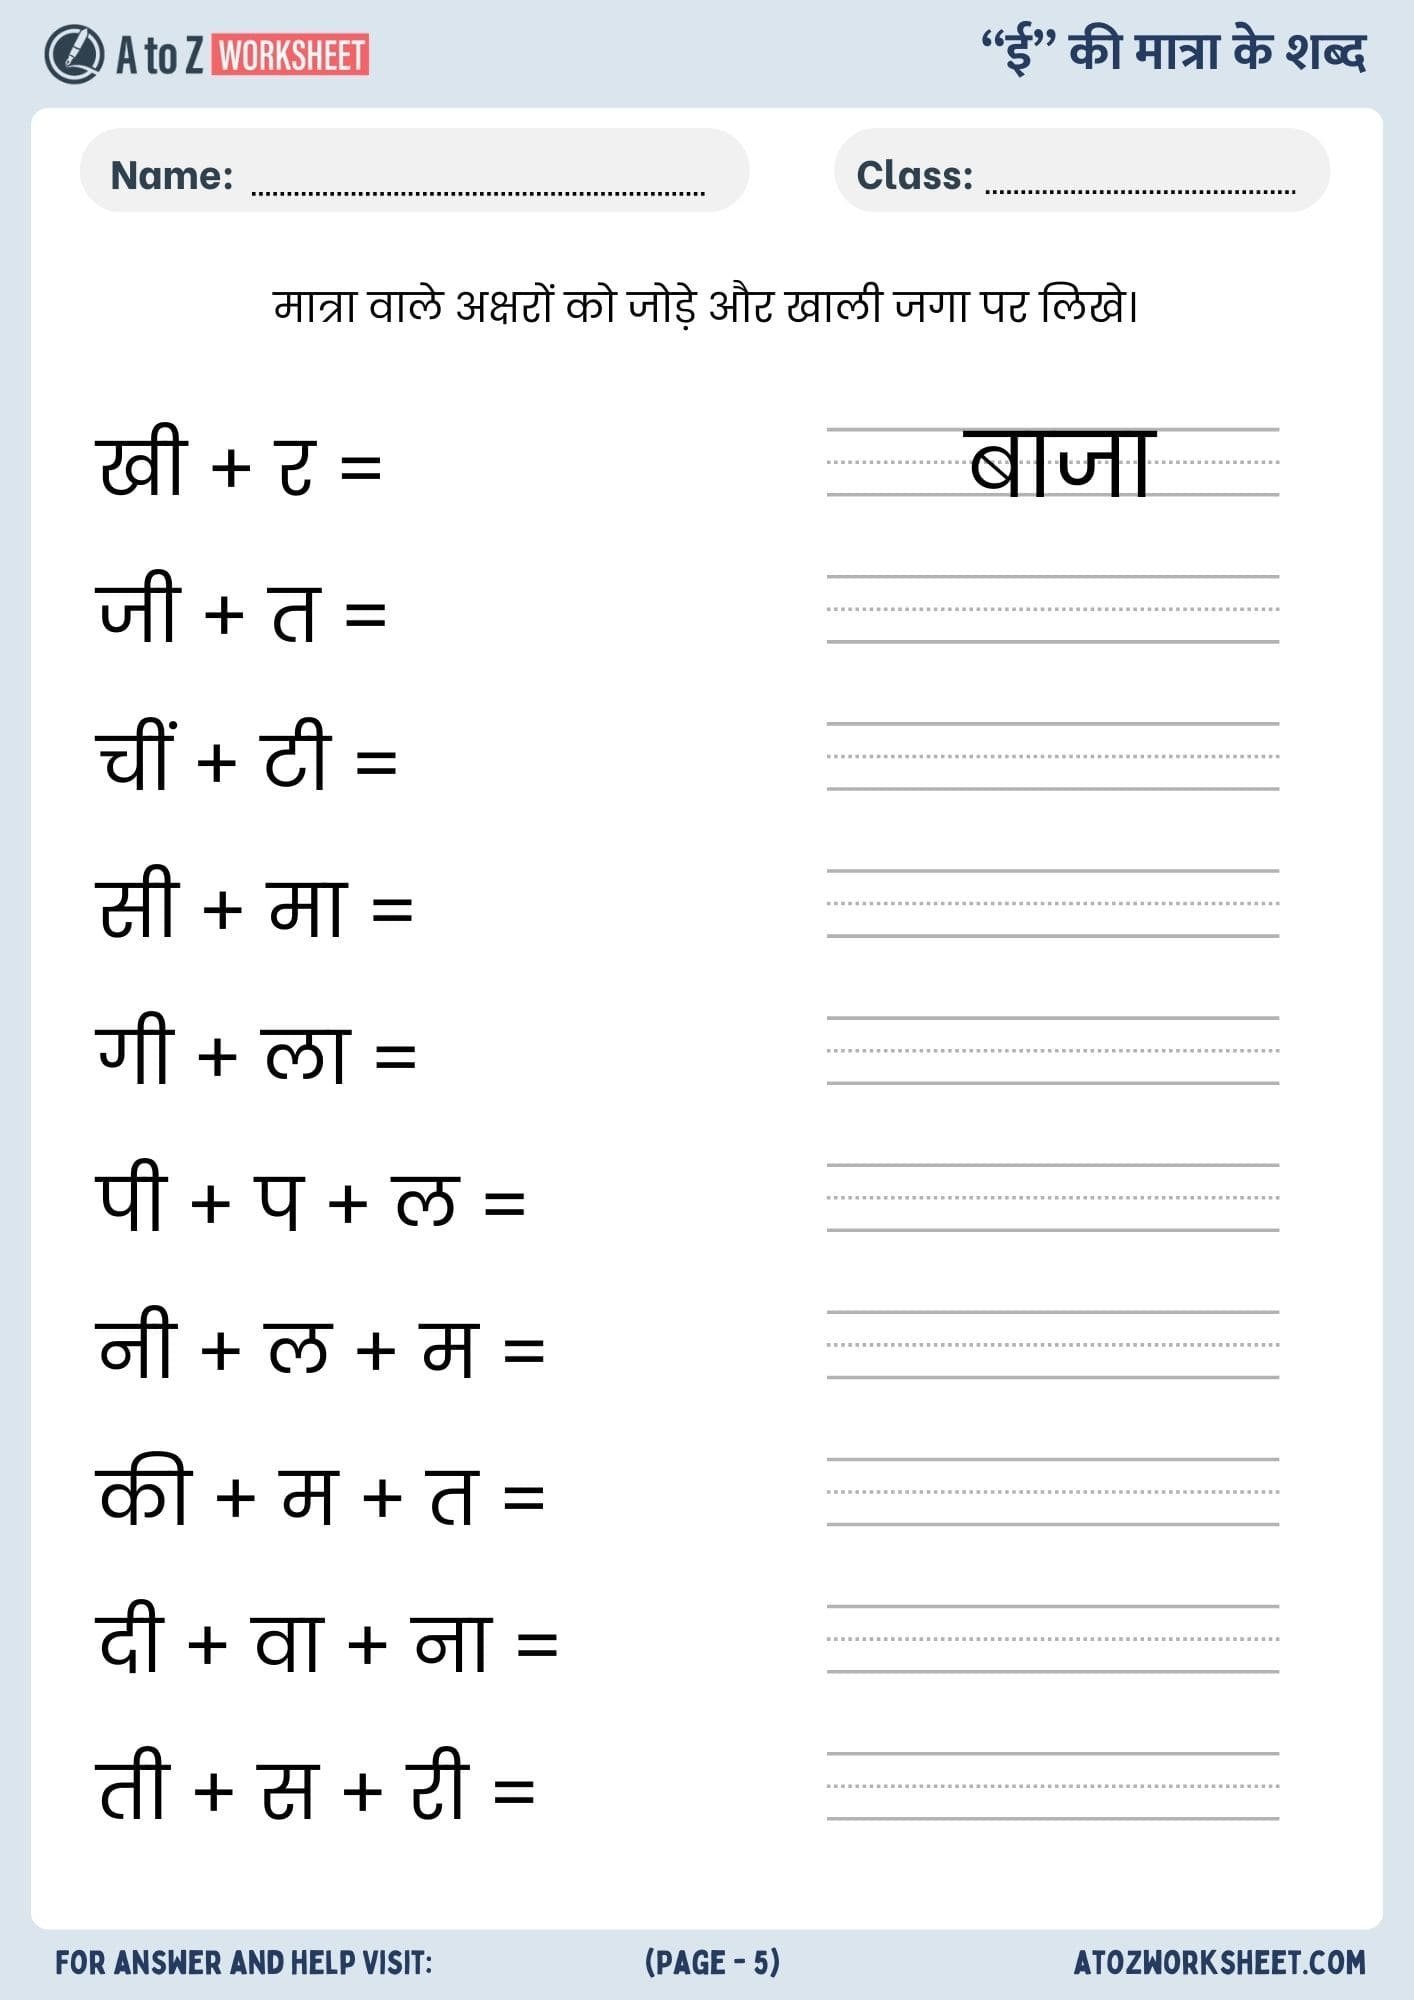 A to Z WORKSHEET
“ई” की मात्रा के शब्द
Name:
Class:
मात्रा वाले अक्षरों को जोड़े और खाली जगा पर लिखे।
खी + र = बाजा
जी + त =
चीं + टी =
सी + मा =
गी + ला =
पी + प + ल =
नी + ल + म =
की + म + त =
दी + वा + ना =
ती + स + री =
FOR ANSWER AND HELP VISIT: (PAGE - 5) ATOZWORKSHEET.COM